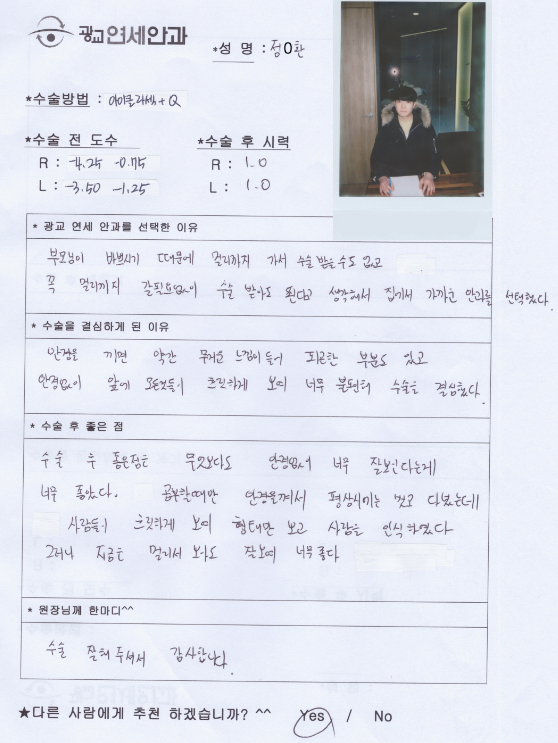 광교연세안과
*성 명 : 정0환
*수술방법 : 아이클라섹 + Q
*수술 전 도수
R : -4.25 -0.75
L : -3.50 -1.25
*수술 후 시력
R : 1.0
L : 1.0
* 광교 연세 안과를 선택한 이유
부모님이 바쁘시기 때문에 멀리까지 가서 수술 받을수도 없고
꼭 멀리까지 갈필요없이 수술 받아도 된다고 생각해서 집에서 가까운 안과를 선택했다.
* 수술을 결심하게 된 이유
안경을 끼면 약간 무거운 느낌이 들어 피곤한 부분도 있고
안경없이 앞에 모든것들이 흐릿하게 보여 너무 불편해 수술을 결심했다.
* 수술 후 좋은 점
수술 후 좋은점은 무엇보다도 안경없이 너무 잘보인다는게
너무 좋았다. 공부할때만 안경을껴서 평상시에는 벗고 다녔는데
사람들이 흐릿하게 보여 형태만 보고 사람을 인식하였다
그러나 지금은 멀리서 보아도 잘보여 너무좋다
* 원장님께 한마디^^
수술 잘해주셔서 감사합니다.
★다른 사람에게 추천 하겠습니까? ^^ Yes / No